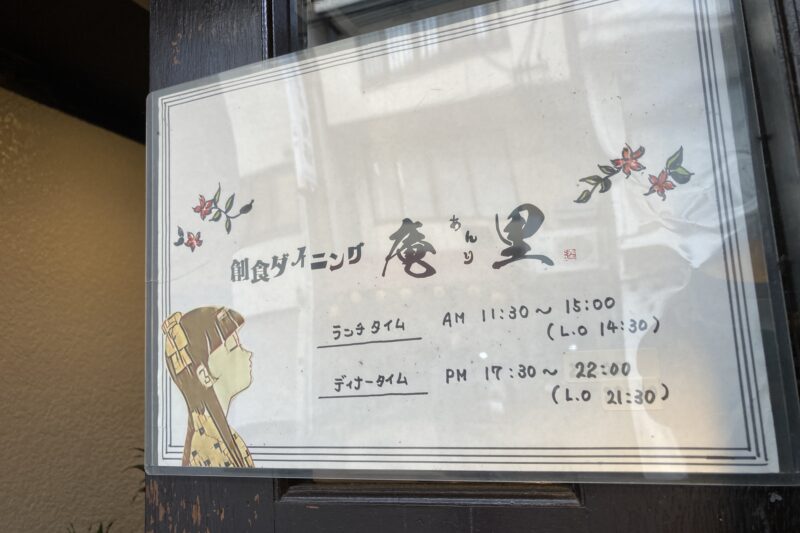 創食ダイニング 庵里
あんり
ランチタイム AM 11:30～15:00
(L.O 14:30)
ディナータイム PM 17:30～22:00
(L.O 21:30)